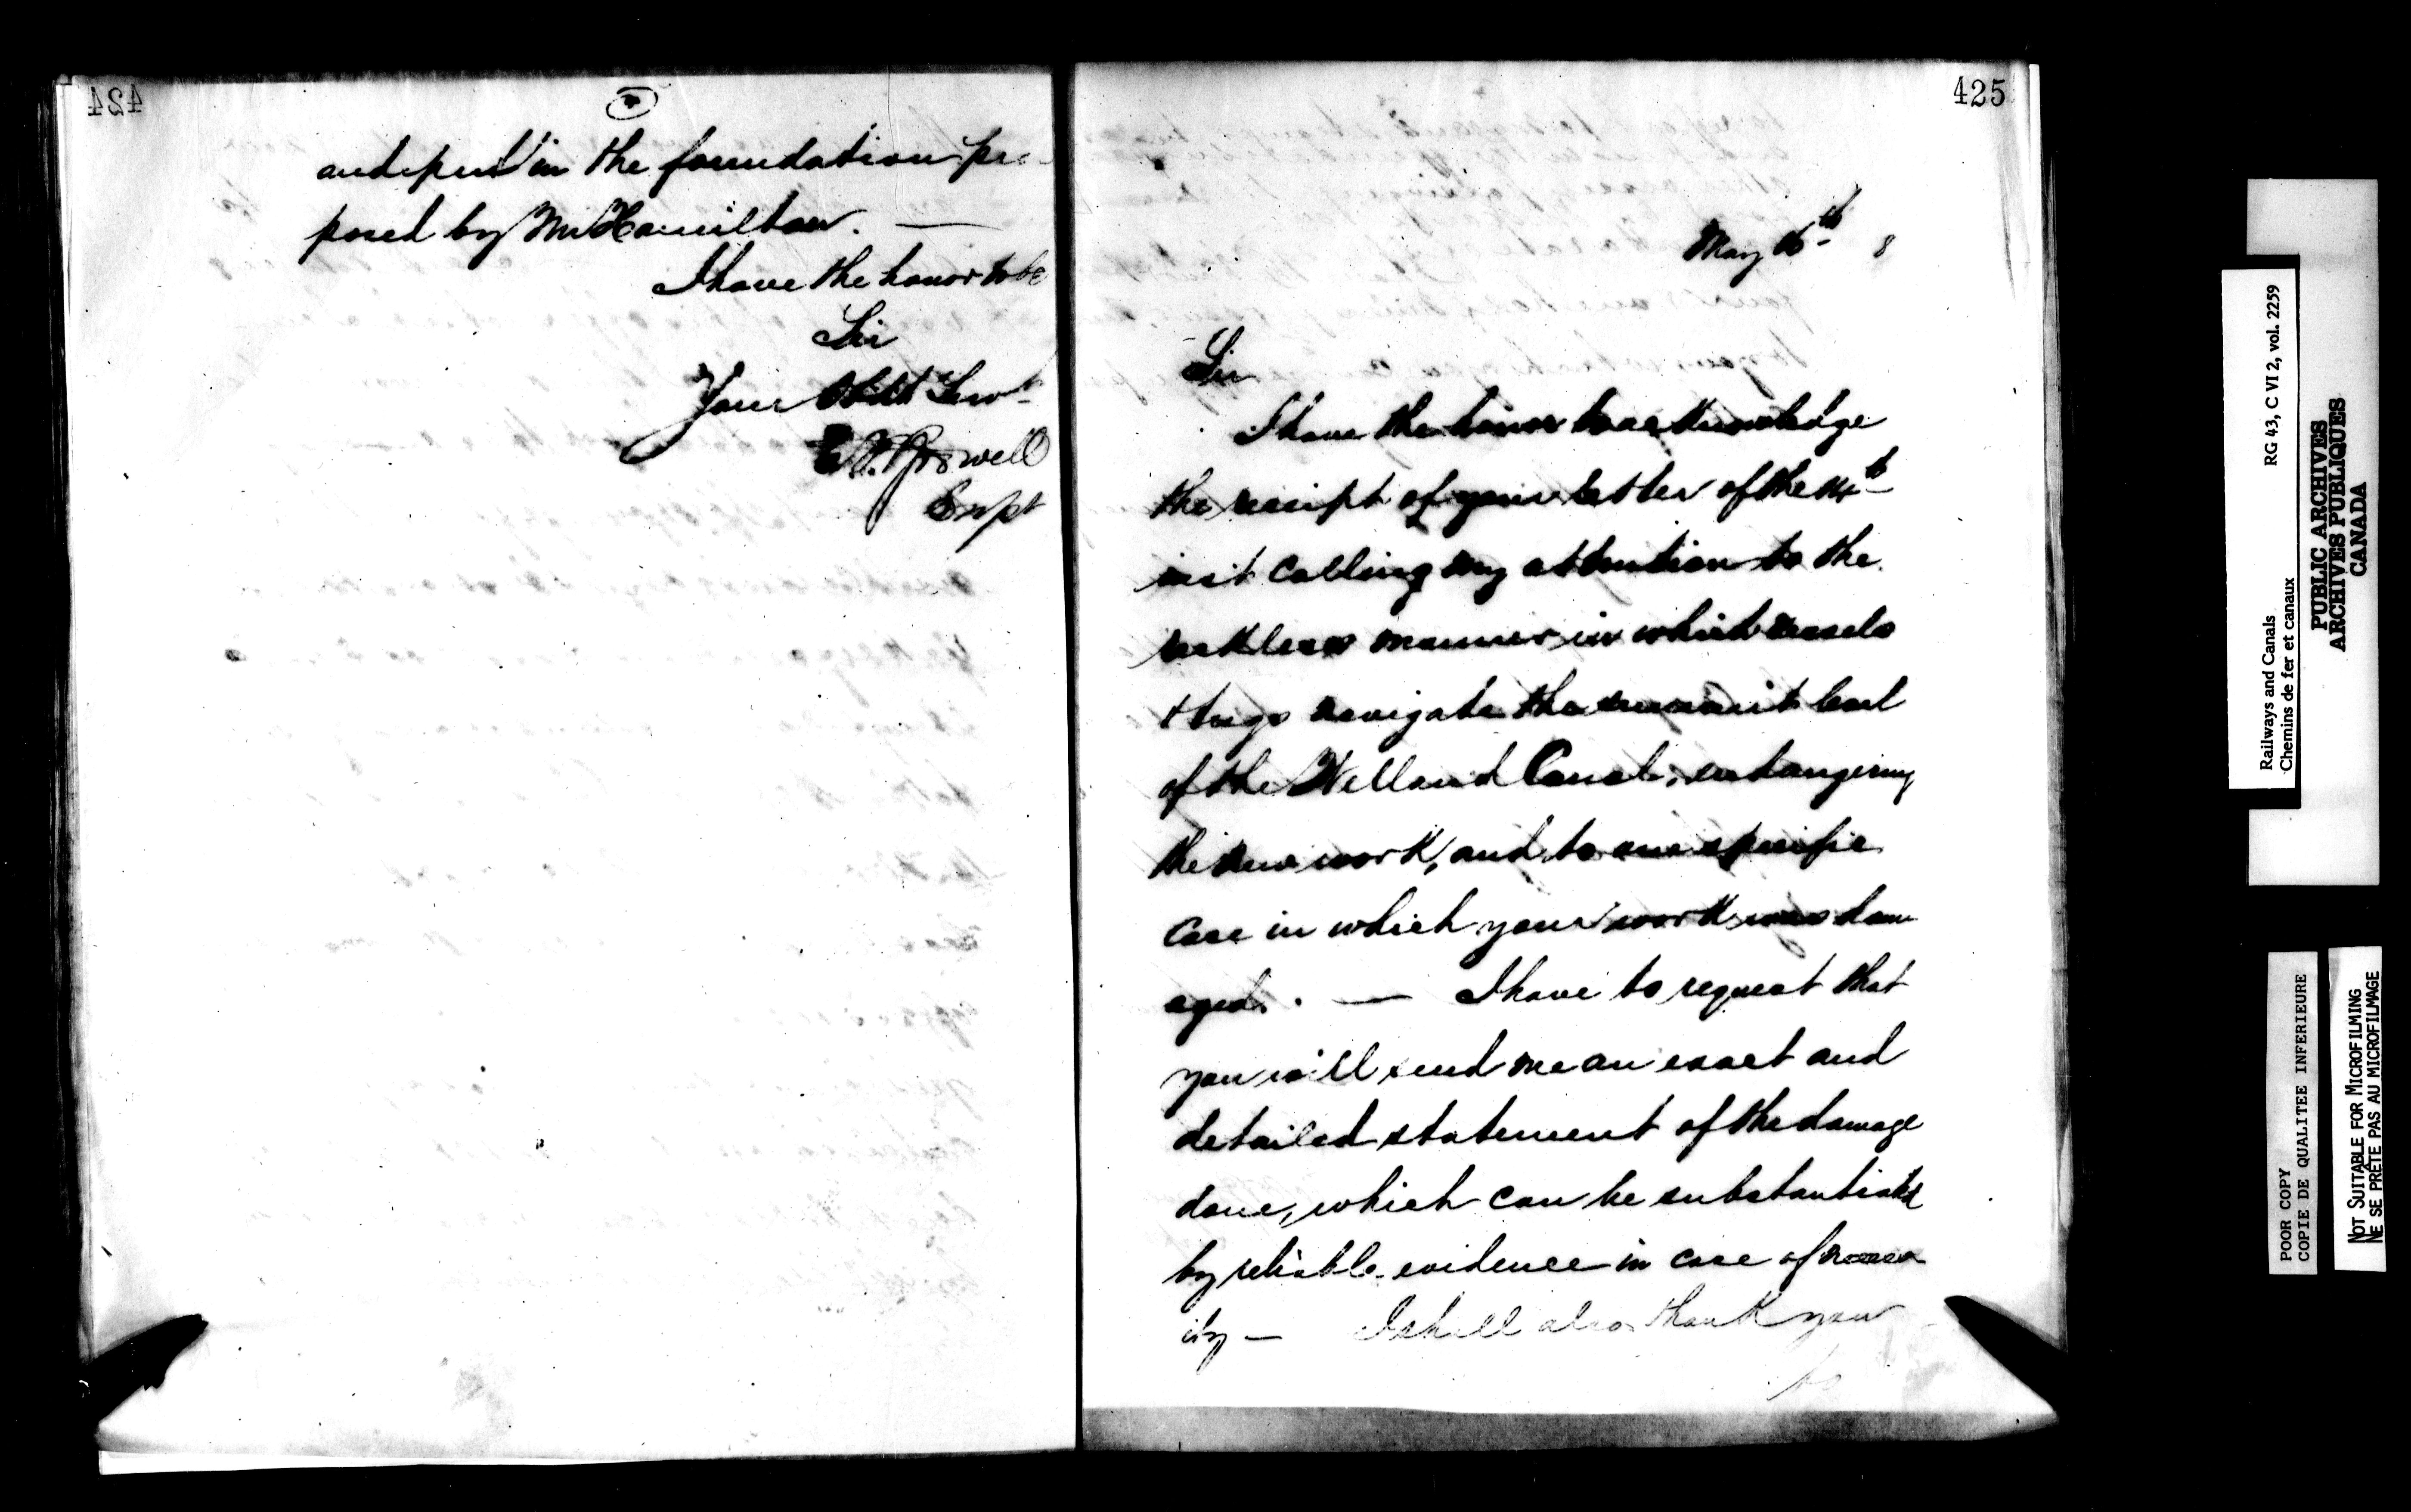 424
and put in the foundation pro
posed by Mr Hamilton. —
I have the honor to be
Sir
Your Obdt Servt
Supt
425
May 16th 8
Sir
I have the honor to acknowledge
the receipt of your letter of the 14th
inst calling my attention to the
reckless manner in which vessels
& tugs navigate the summit level
of the Welland Canal, endangering
the new work, and to one specific
case in which your work was dam
aged. — I have to request that
you will send me an exact and
detailed statement of the damage
done, which can be substantiated
by reliable evidence in case of necess
ity — I shall also thank you
to
Railways and Canals RG 43, C VI 2, vol. 2259
Chemins de fer et canaux
PUBLIC ARCHIVES
ARCHIVES PUBLIQUES
CANADA
POOR COPY
COPIE DE QUALITEE INFERIEURE
NOT SUITABLE FOR MICROFILMING
NE SE PRÊTE PAS AU MICROFILMAGE